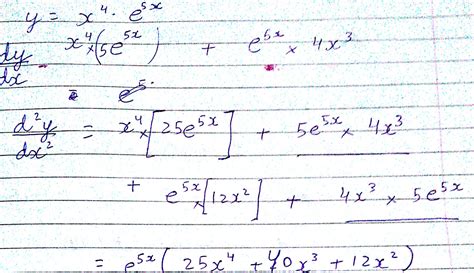 y = x⁴ · e⁵ˣ
dy/dx = x⁴ × (5e⁵ˣ) + e⁵ˣ × 4x³
= e⁵·
d²y/dx² = x⁴ × [25e⁵ˣ] + 5e⁵ˣ × 4x³
+ e⁵ˣ × [12x²] + 4x³ × 5e⁵ˣ
= e⁵ˣ ( 25x⁴ + 40x³ + 12x² )